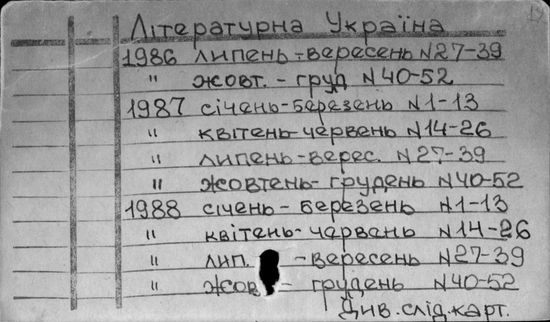 Літературна Україна
1986 липень-вересень N27-39
" жовт.-груд N40-52
1987 січень-березень N1-13
" квітень-червень N14-26
" липень-верес. N27-39
" жовтень-грудень N40-52
1988 січень-березень N1-13
" квітень-чарвань N14-26
" лип. -вересень N27-39
" жов -грудень N40-52
Див.слід.карт.